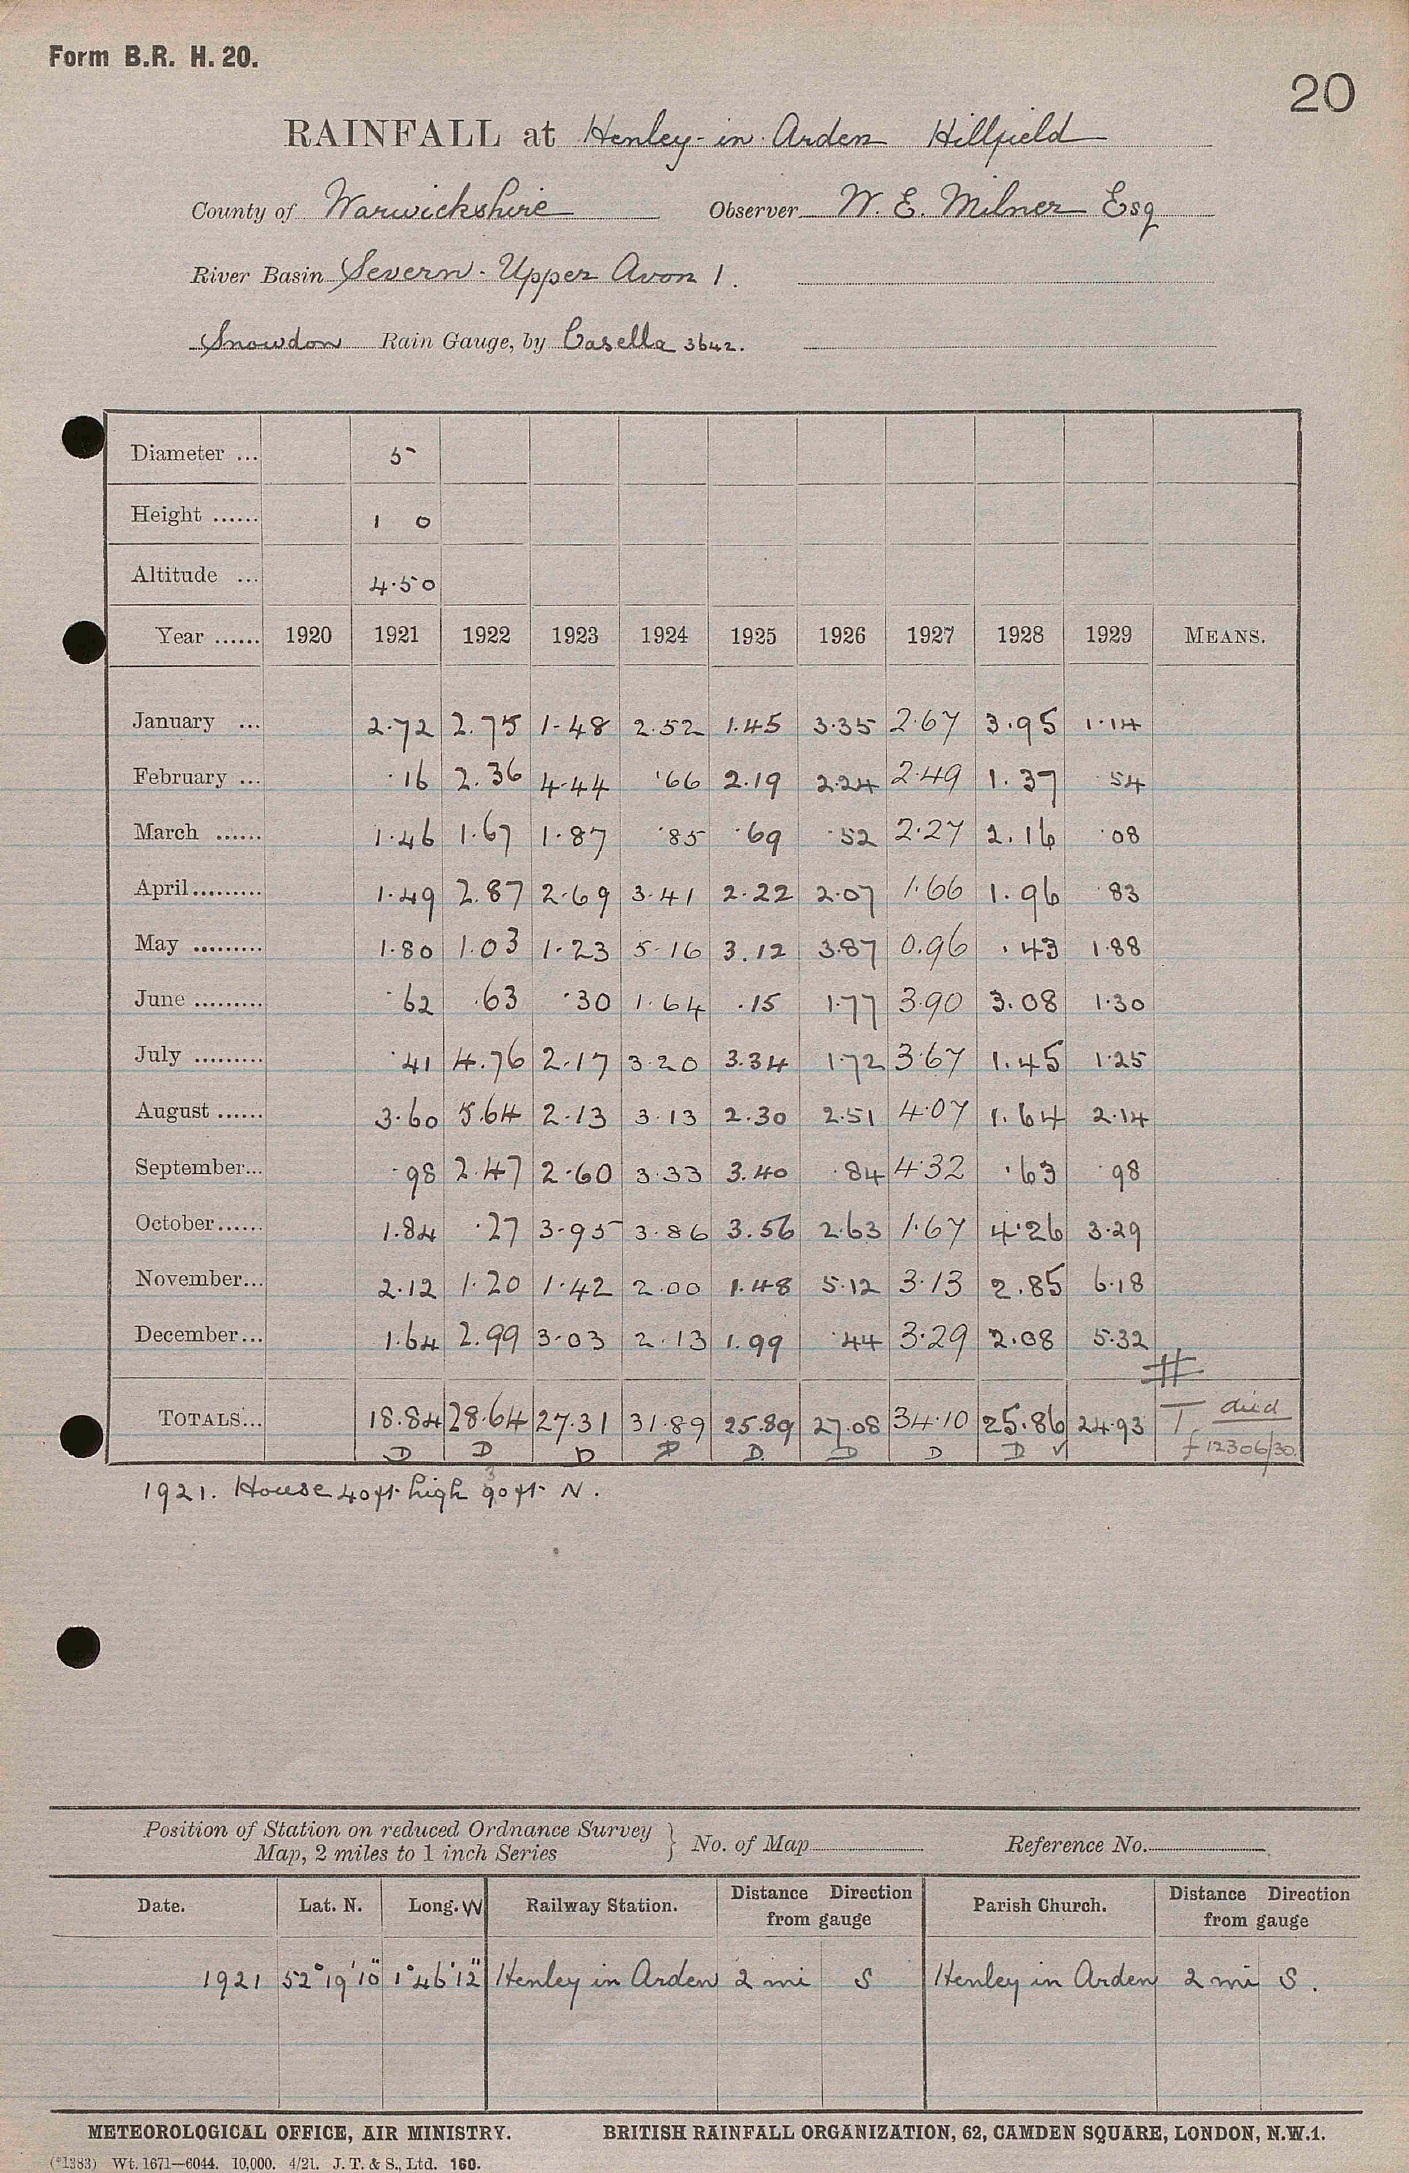 Form B.R. H. 20.
20
RAINFALL at Henley-in-Arden Hillfield
County of Warwickshire Observer W. E. Milner Esq
River Basin Severn - Upper Avon 1.
Snowdon Rain Gauge, by Casella 3642.
Diameter ... 5
Height ...... 1 0
Altitude ... 4.50
Year ...... 1920 1921 1922 1923 1924 1925 1926 1927 1928 1929 MEANS.
January ... 2.72 2.75 1.48 2.52 1.45 3.35 2.67 3.95 1.14
February ... .16 2.36 4.44 .66 2.19 2.24 2.49 1.37 .54
March ...... 1.46 1.67 1.87 .85 .69 .52 2.27 2.16 .08
April......... 1.49 2.87 2.69 3.41 2.22 2.07 1.66 1.96 .83
May ......... 1.80 1.03 1.23 5.16 3.12 3.87 0.96 .43 1.88
June ......... .62 .63 .30 1.64 .15 1.77 3.90 3.08 1.30
July ......... .41 4.76 2.17 3.20 3.34 1.72 3.67 1.45 1.25
August ...... 3.60 5.64 2.13 3.13 2.30 2.51 4.07 1.64 2.14
September... .98 2.47 2.60 3.33 3.40 .84 4.32 .63 .98
October...... 1.84 .27 3.95 3.86 3.56 2.63 1.67 4.26 3.29
November... 2.12 1.20 1.42 2.00 1.48 5.12 3.13 2.85 6.18
December... 1.64 2.99 3.03 2.13 1.99 .44 3.29 2.08 5.32
TOTALS... 18.84 28.64 27.31 31.89 25.89 27.08 34.10 25.86 24.93 T died
D D D D D D D D ✓ f 12306/30.
1921. House 40 ft high 90 ft N.
Position of Station on reduced Ordnance Survey
Map, 2 miles to 1 inch Series } No. of Map Reference No.
Date. Lat. N. Long. W Railway Station. Distance Direction from gauge Parish Church. Distance Direction from gauge
1921 52° 19' 10" 1° 46' 12" Henley in Arden 2 mi S Henley in Arden 2 mi S.
METEOROLOGICAL OFFICE, AIR MINISTRY. BRITISH RAINFALL ORGANIZATION, 62, CAMDEN SQUARE, LONDON, N.W.1.
(*1383) Wt. 1671—6044. 10,000. 4/21. J. T. & S., Ltd. 160.